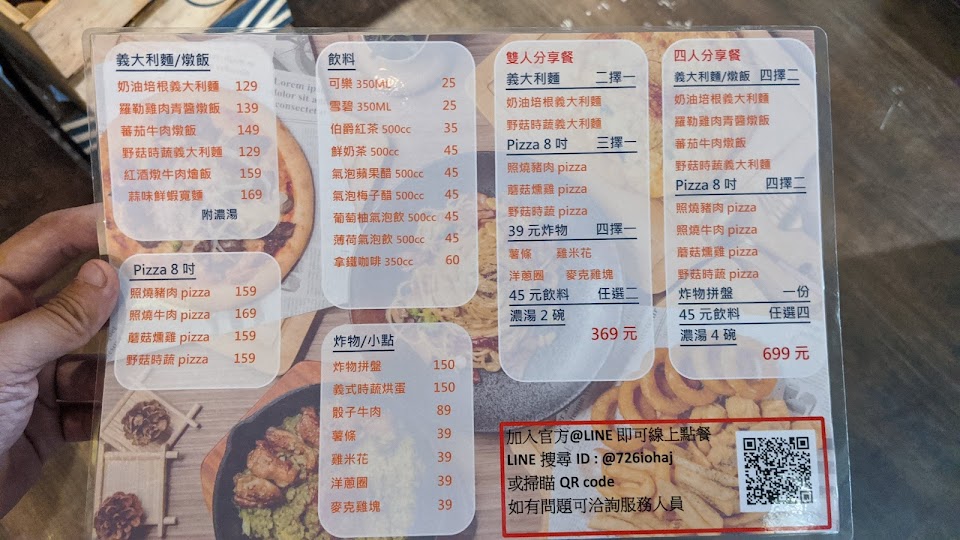 義大利麵/燉飯
奶油培根義大利麵 129
羅勒雞肉青醬燉飯 139
蕃茄牛肉燉飯 149
野菇時蔬義大利麵 129
紅酒燉牛肉燴飯 159
蒜味鮮蝦寬麵 169
附濃湯
Pizza 8 吋
照燒豬肉 pizza 159
照燒牛肉 pizza 169
蘑菇燻雞 pizza 159
野菇時蔬 pizza 159
飲料
可樂 350ML 25
雪碧 350ML 25
伯爵紅茶 500cc 35
鮮奶茶 500cc 45
氣泡蘋果醋 500cc 45
氣泡梅子醋 500cc 45
葡萄柚氣泡飲 500cc 45
薄荷氣泡飲 500cc 45
拿鐵咖啡 350cc 60
炸物/小點
炸物拼盤 150
義式時蔬烘蛋 150
骰子牛肉 89
薯條 39
雞米花 39
洋蔥圈 39
麥克雞塊 39
雙人分享餐
義大利麵 二擇一
奶油培根義大利麵
野菇時蔬義大利麵
Pizza 8 吋 三擇一
照燒豬肉 pizza
蘑菇燻雞 pizza
野菇時蔬 pizza
39 元炸物 四擇一
薯條 雞米花
洋蔥圈 麥克雞塊
45 元飲料 任選二
濃湯 2 碗
369 元
四人分享餐
義大利麵/燉飯 四擇二
奶油培根義大利麵
羅勒雞肉青醬燉飯
蕃茄牛肉燉飯
野菇時蔬義大利麵
Pizza 8 吋 四擇二
照燒豬肉 pizza
照燒牛肉 pizza
蘑菇燻雞 pizza
野菇時蔬 pizza
炸物拼盤 一份
45 元飲料 任選四
濃湯 4 碗
699 元
加入官方@LINE 即可線上點餐
LINE 搜尋 ID : @726iohaj
或掃瞄 QR code
如有問題可洽詢服務人員